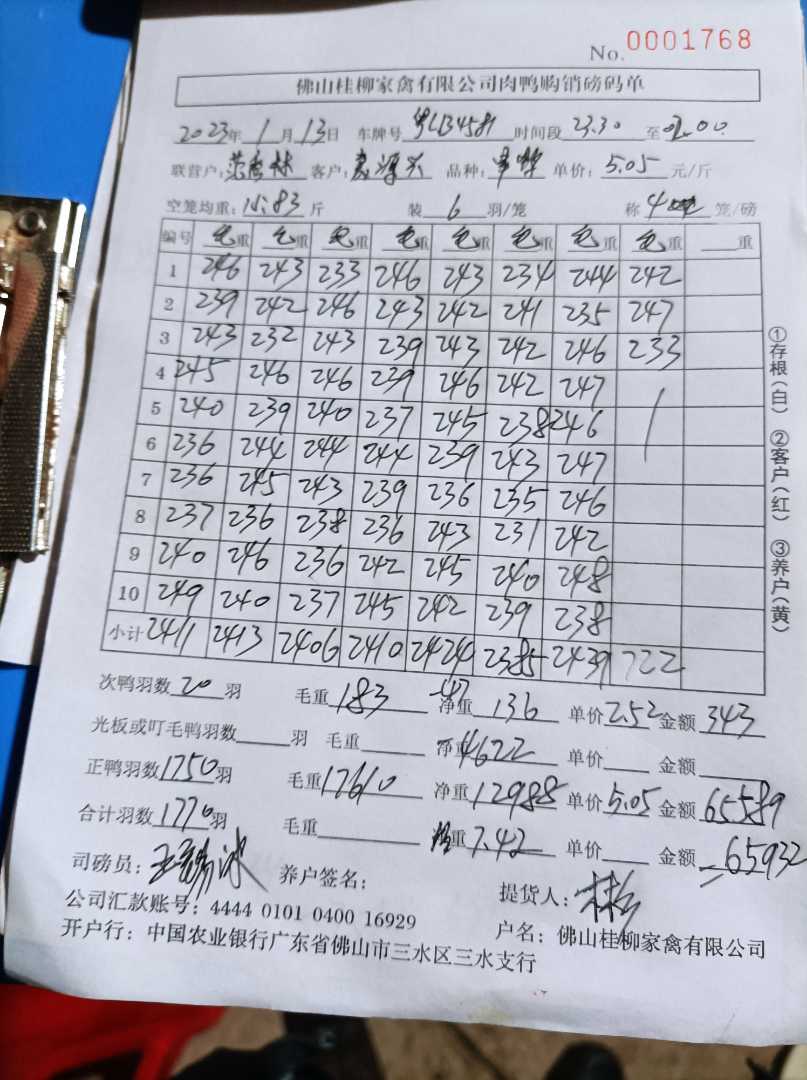 No. 0001768
佛山桂柳家禽有限公司肉鸭购销磅码单
2023年1月13日 车牌号 时间段23.30至02.00
联营户: 客户: 源兴 品种: 单价:5.05元/斤
空笼均重:15.83斤 装6羽/笼 称4笼/磅
编号 毛重 毛重 毛重 毛重 毛重 毛重 毛重 毛重 重
1 246 243 233 246 243 234 244 242
2 239 242 246 243 242 241 235 247
3 243 232 243 239 243 242 246 233
4 245 246 246 239 246 242 247
5 240 239 240 237 245 238 246
6 236 244 244 244 239 243 247
7 236 245 243 239 236 235 246
8 237 236 238 236 243 231 242
9 240 246 236 242 245 240 248
10 249 240 237 245 242 239 238
小计 2411 2413 2406 2410 2424 2385 2439 722
次鸭羽数20羽 毛重183 -47 净重136 单价2.52 金额343
光板或叮毛鸭羽数 羽 毛重 净重4622 单价 金额
正鸭羽数1750羽 毛重17610 净重12988 单价5.05 金额65589
合计羽数1770羽 毛重 重7.42 单价 金额65932
司磅员: 养户签名: 提货人:
公司汇款账号:4444 0101 0400 16929 户名:佛山桂柳家禽有限公司
开户行:中国农业银行广东省佛山市三水区三水支行
①存根(白) ②客户(红) ③养户(黄)